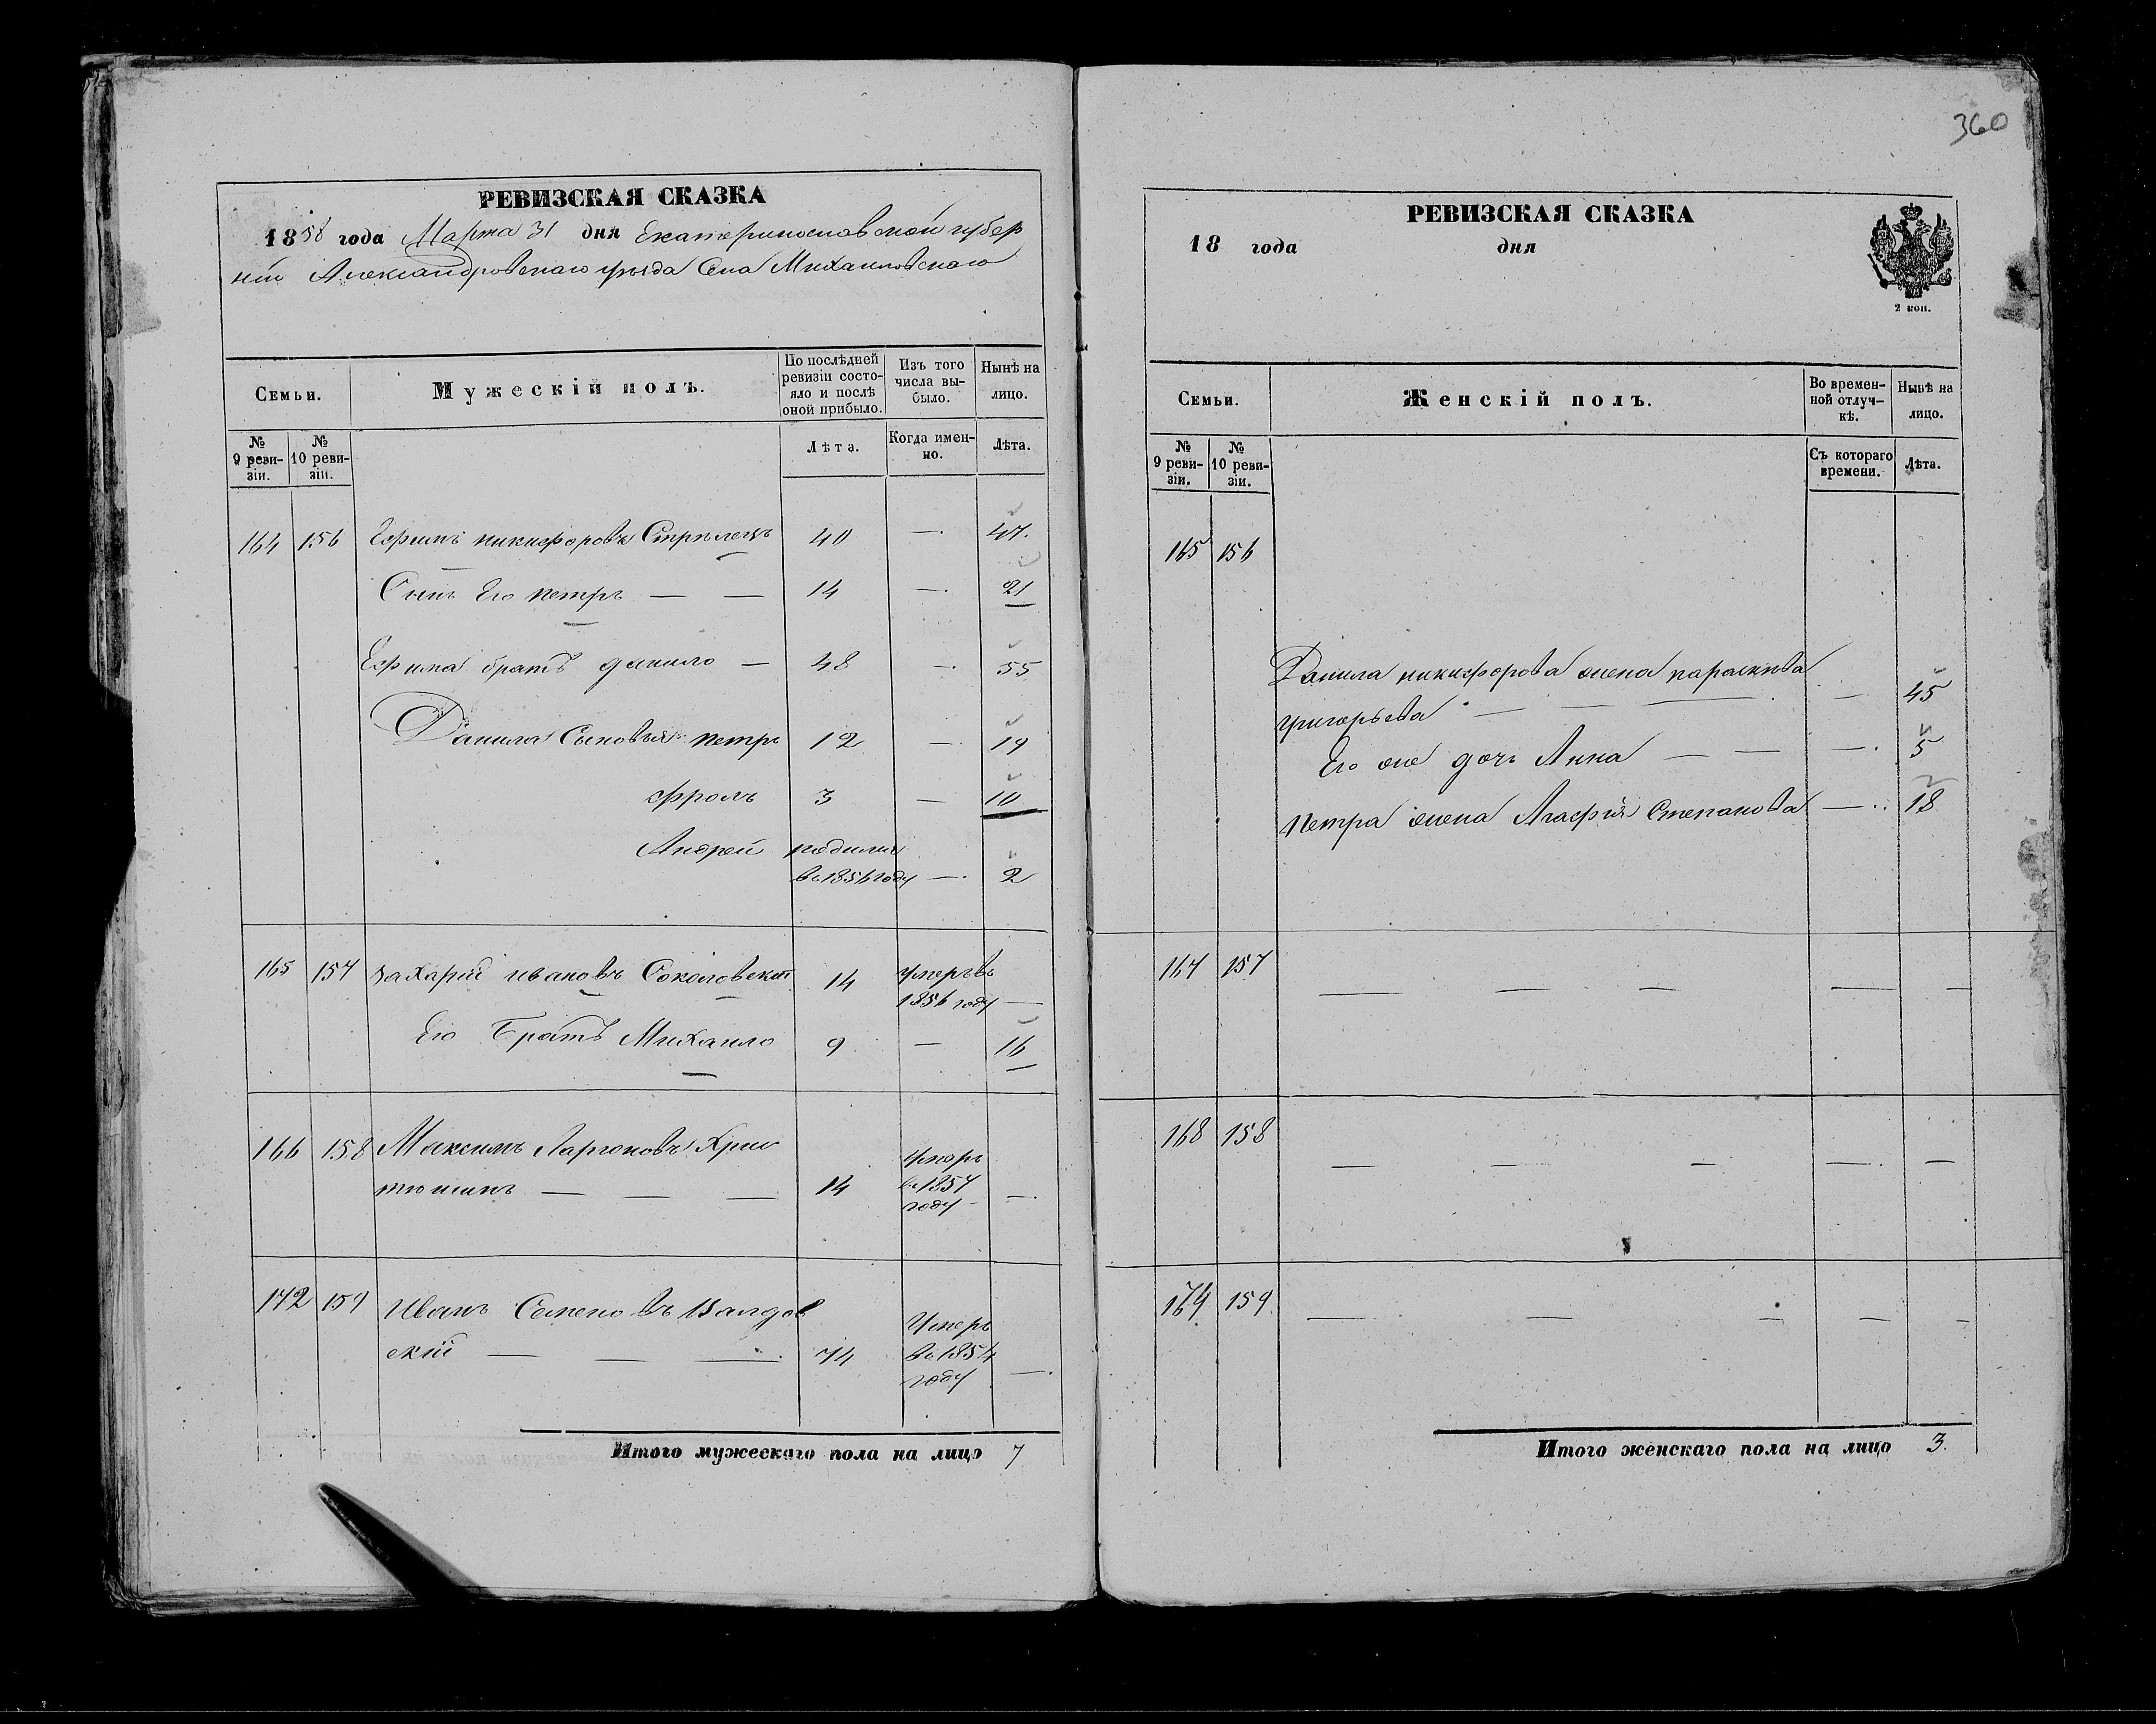 360
РЕВИЗСКАЯ СКАЗКА
1858 года Марта 31 дня Екатеринославской губер
ніи Александровскаго уѣзда Села Михайловскаго
Семьи.
Мужескій полъ.
По послѣдней ревизіи состояло и послѣ оной прибыло.
Изъ того числа выбыло.
Нынѣ на лицо.
№ 9 ревизіи.
№ 10 ревизіи.
Лѣта.
Когда именно.
Лѣта.
164 156 Ефимъ никифоровъ Стрѣлецъ 40 — 47.
Сынъ Его петръ — — 14 — 21
Ефима братъ данило — 48 — 55
Данила Сыновья петръ 12 — 19
фролъ 3 — 10
Андрей родился
въ 1856 году — 2
165 157 Захарій ивановъ Соколовскій 14 умеръ въ
1856 году —
Его Братъ Михаило 9 — 16
166 158 Максимъ Ларіоновъ Хрис
тюшинъ — — — 14 умеръ
въ 1857
году —
172 159 Иванъ Семеновъ
скій — — — 74 Умеръ
въ 1854
году —
Итого мужескаго пола на лицо 7
РЕВИЗСКАЯ СКАЗКА
18 года дня
2 коп.
Семьи.
Женскій полъ.
Во временной отлучкѣ.
Нынѣ на лицо.
№ 9 ревизіи.
№ 10 ревизіи.
Съ котораго времени.
Лѣта.
165 156
Данила никифорова жена параскѣва
григорьева — — — — 45
Его же дочь Анна — — — 5
петра жена Агафія Степанова — 18
167 157 — — — — —
168 158 — — — — —
159 — — — — —
Итого женскаго пола на лицо 3.